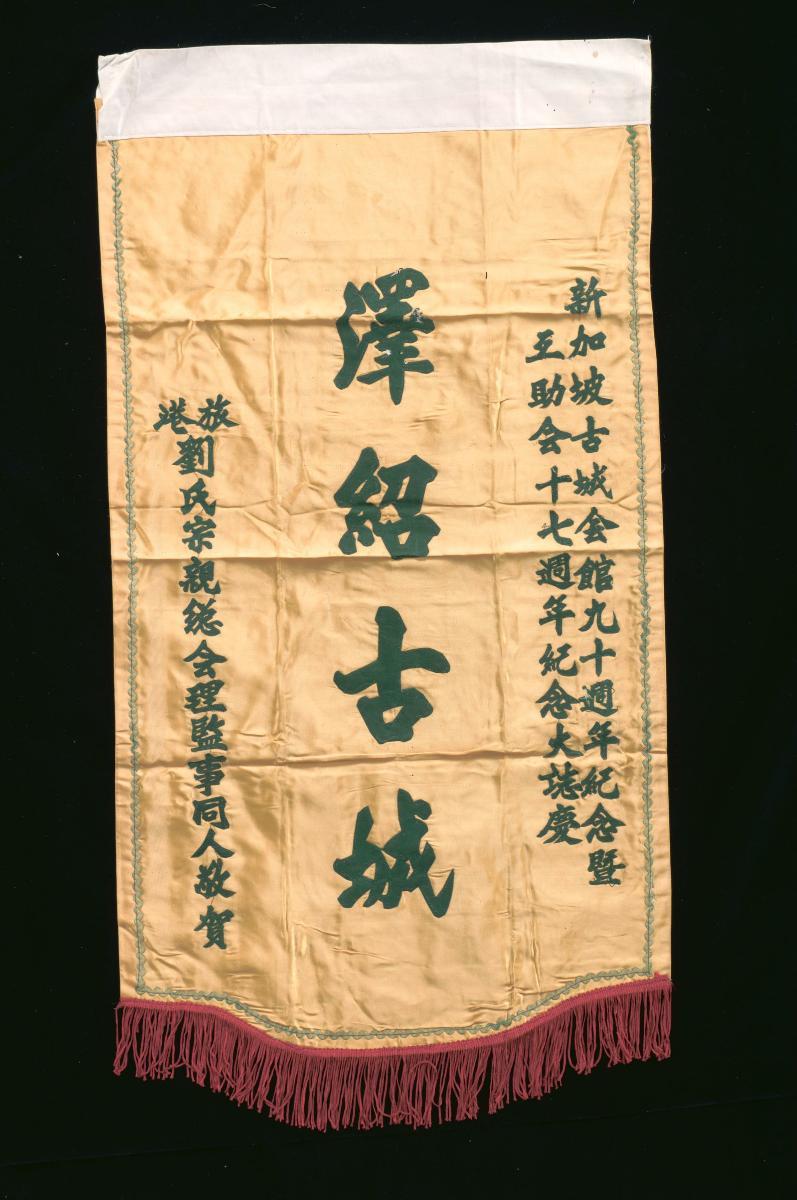 新加坡古城会館九十週年紀念暨
互助会十七週年紀念大誌慶
澤紹古城
旅港劉氏宗親総会理監事同人敬賀